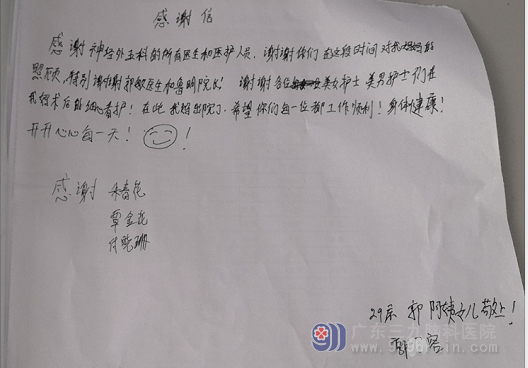 感谢信
感谢神经外五科的所有医生和医护人员，谢谢你们在这段时间对我妈妈的
照顾，特别谢谢郭敏医生和鲁明院长！谢谢各位美女护士美男护士们在
我妈术后的细心看护！在此我妈出院了，希望你们每一位都工作顺利！身体健康！
开开心心每一天！！
感谢
覃金花
付晓珊
29床 郭阿姨女儿敬上！
广东三九脑科医院